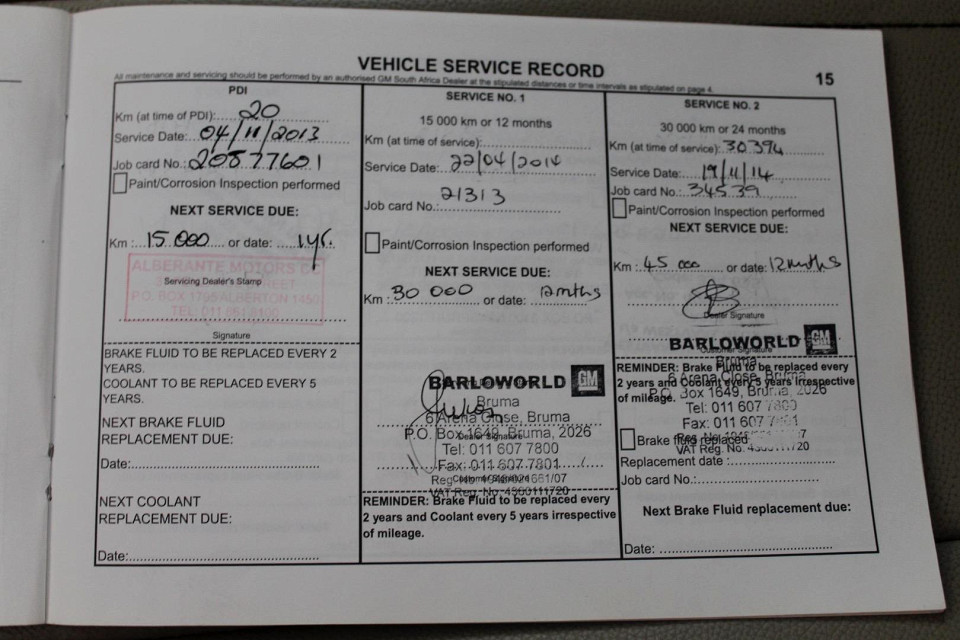 VEHICLE SERVICE RECORD
15
All maintenance and servicing should be performed by an authorised GM South Africa Dealer at the stipulated distances or time intervals as stipulated on page 4.
PDI
Km (at time of PDI): 20
Service Date: 04/11/2013
Job card No.: 208777601
Paint/Corrosion Inspection performed
NEXT SERVICE DUE:
Km : 15 000 or date: 1yr.
ALBERANTE MOTORS CC
Servicing Dealer's Stamp
P.O. BOX 1795 ALBERTON 1450
TEL: 011
Signature
BRAKE FLUID TO BE REPLACED EVERY 2
YEARS.
COOLANT TO BE REPLACED EVERY 5
YEARS.
NEXT BRAKE FLUID
REPLACEMENT DUE:
Date:
NEXT COOLANT
REPLACEMENT DUE:
Date:
SERVICE NO. 1
15 000 km or 12 months
Km (at time of service):
Service Date: 22/04/2014
21313
Job card No.:
Paint/Corrosion Inspection performed
NEXT SERVICE DUE:
Km : 30 000 or date: 12mths
BARLOWORLD GM
Bruma
6 Arena Close, Bruma
P.O. Box 1649, Bruma, 2026
Dealer Signature
Tel: 011 607 7800
Fax: 011 607 7801
Customer Signature
VAT Reg. No. 4360111720
REMINDER: Brake Fluid to be replaced every
2 years and Coolant every 5 years irrespective
of mileage.
SERVICE NO. 2
30 000 km or 24 months
Km (at time of service): 30394
Service Date: 19/11/14
Job card No.: 34539
Paint/Corrosion Inspection performed
NEXT SERVICE DUE:
Km : 45 000 or date: 12mnths
Dealer Signature
BARLOWORLD GM
Customer Signature
Bruma
REMINDER: Brake Fluid to be replaced every
6 Arena Close, Bruma
2 years and Coolant every 5 years irrespective
P.O. Box 1649, Bruma, 2026
of mileage.
Tel: 011 607 7800
Fax: 011 607 7801
Brake fluid replaced
VAT Reg. No. 4360111720
Replacement date :
Job card No.:
Next Brake Fluid replacement due:
Date: